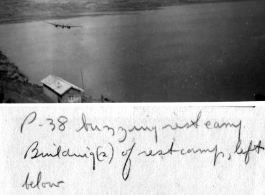 P-38 buzzing rest camp
Building(s) of rest camp, left
below